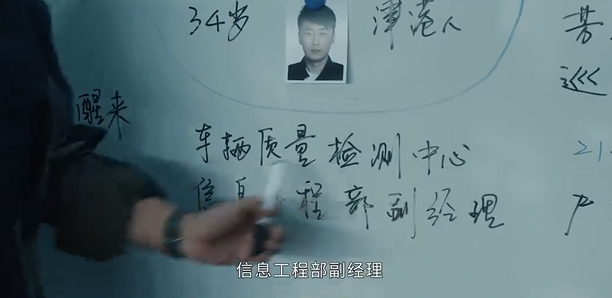 34岁
津港人
芳
巡
醒来
车辆质量检测中心
信息工程部副经理
21
产
信息工程部副经理